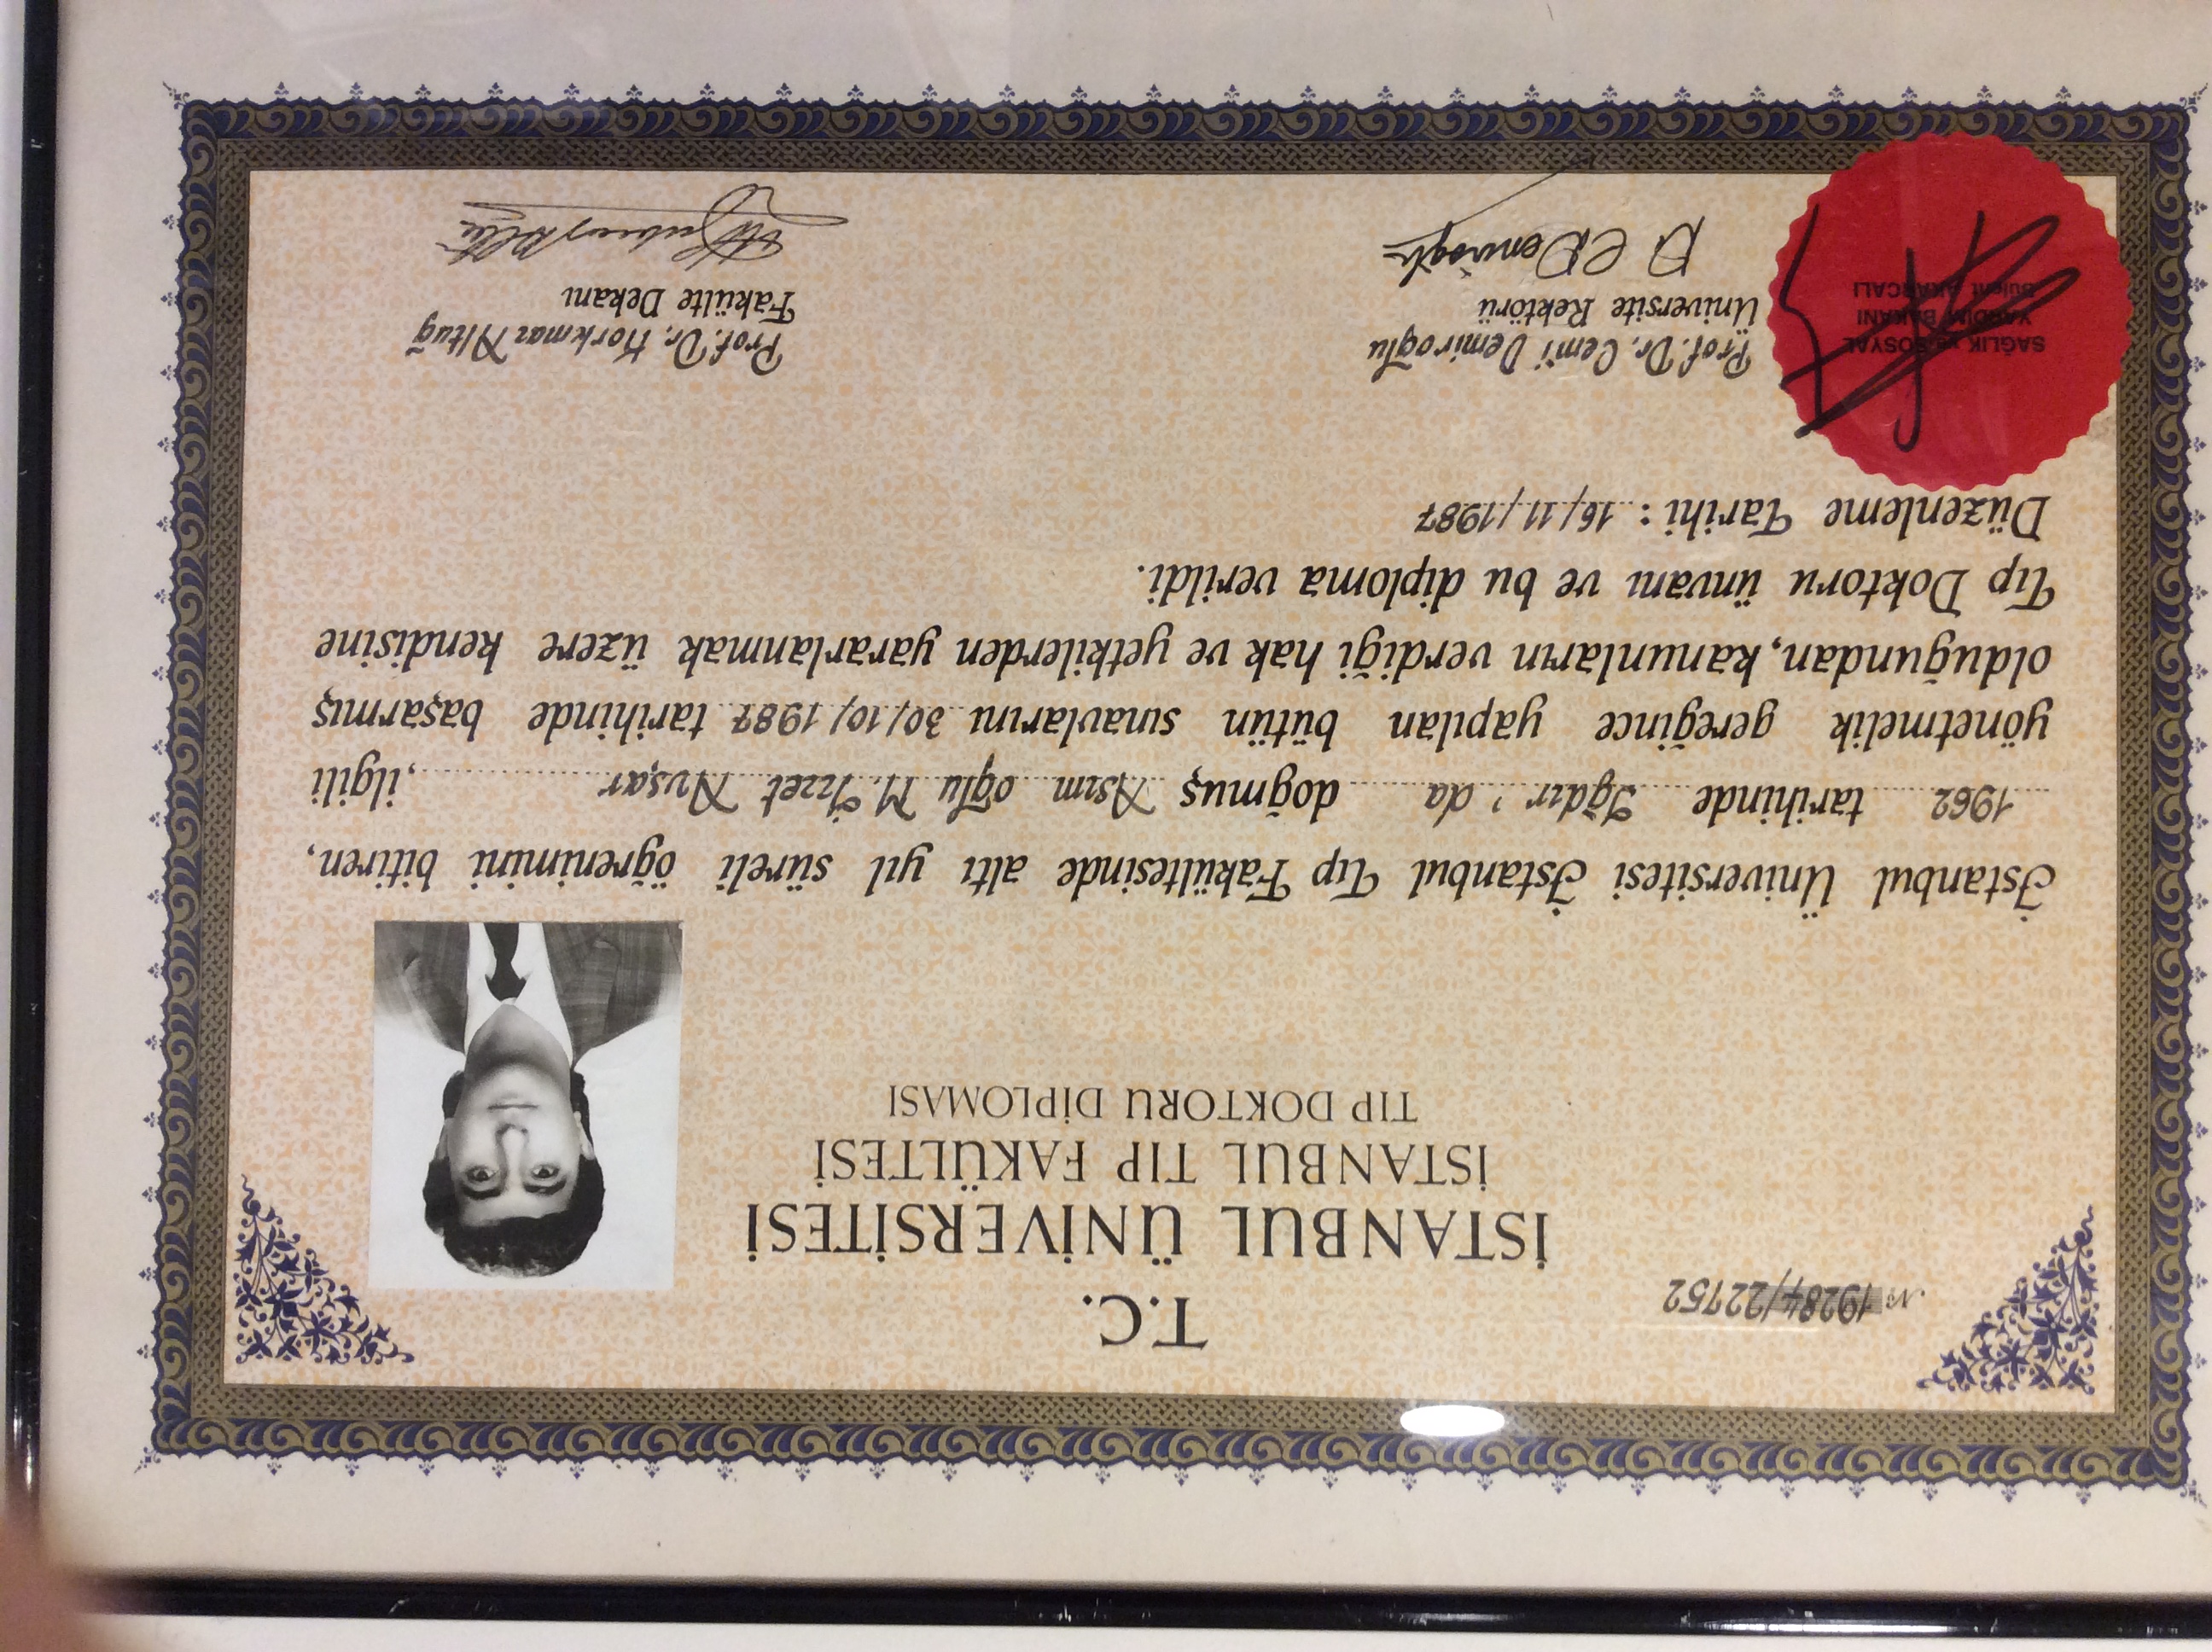 T.C.
№ 19284/22752
İSTANBUL ÜNİVERSİTESİ
İSTANBUL TIP FAKÜLTESİ
TIP DOKTORU DİPLOMASI
İstanbul Üniversitesi İstanbul Tıp Fakültesinde altı yıl süreli öğrenimini bitiren,
1962 tarihinde Iğdır'da doğmuş Asım oğlu M. İzzet Nuşar, ilgili
yönetmelik gereğince yapılan bütün sınavlarını 30/10/1987 tarihinde başarmış
olduğundan, kanunların verdiği hak ve yetkilerden yararlanmak üzere kendisine
Tıp Doktoru ünvanı ve bu diploma verildi.
Düzenleme Tarihi : 16/11/1987
SAĞLIK ve SOSYAL
YARDIM BAKANI
Bülent AKARCALI
Prof. Dr. Cem'i Demiroğlu
Üniversite Rektörü
Prof. Dr. Korkmaz Altuğ
Fakülte Dekanı